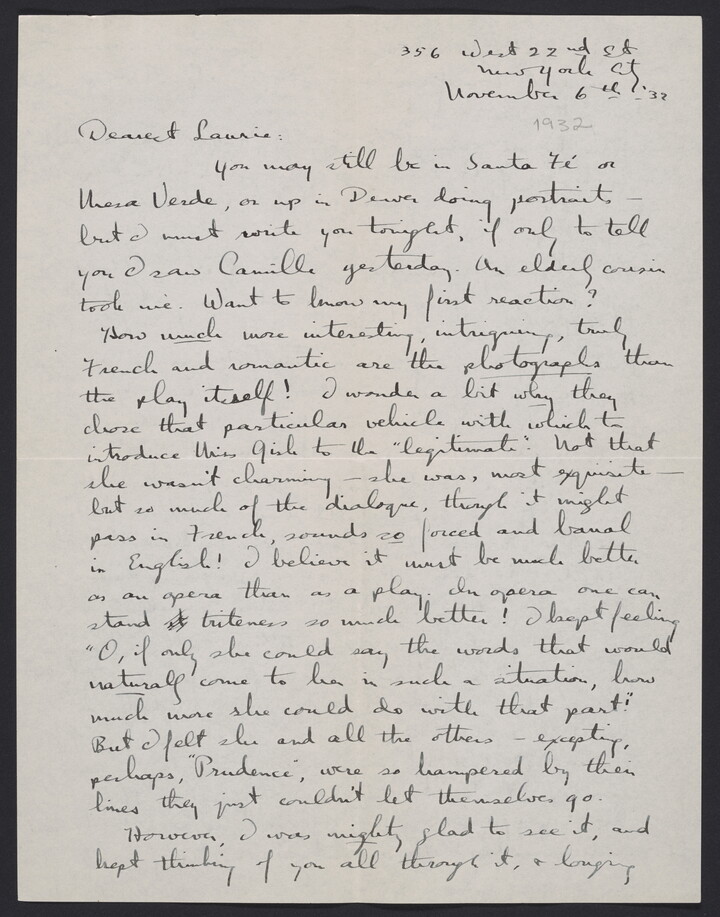 356 West 22nd St
New York City
November 6th '32
1932
Dearest Laurie:
You may still be in Santa Fé or
Mesa Verde, or up in Denver doing portraits –
but I must write you tonight, if only to tell
you I saw Camille yesterday. An elderly cousin
took me. Want to know my first reaction?
How much more interesting, intriguing, truly
French and romantic are the photographs than
the play itself! I wonder a bit why they
chose that particular vehicle with which to
introduce Miss Gish to the "legitimate". Not that
she wasn't charming – she was, most exquisite –
but so much of the dialogue, though it might
pass in French, sounds so forced and banal
in English! I believe it must be much better
as an opera than as a play. In opera one can
stand triteness so much better! I kept feeling
"O, if only she could say the words that would
naturally come to her in such a situation, how
much more she could do with that part!"
But I felt she and all the others – excepting,
perhaps, "Prudence", were so hampered by their
lines they just couldn't let themselves go.
However, I was mighty glad to see it, and
kept thinking of you all through it, & longing